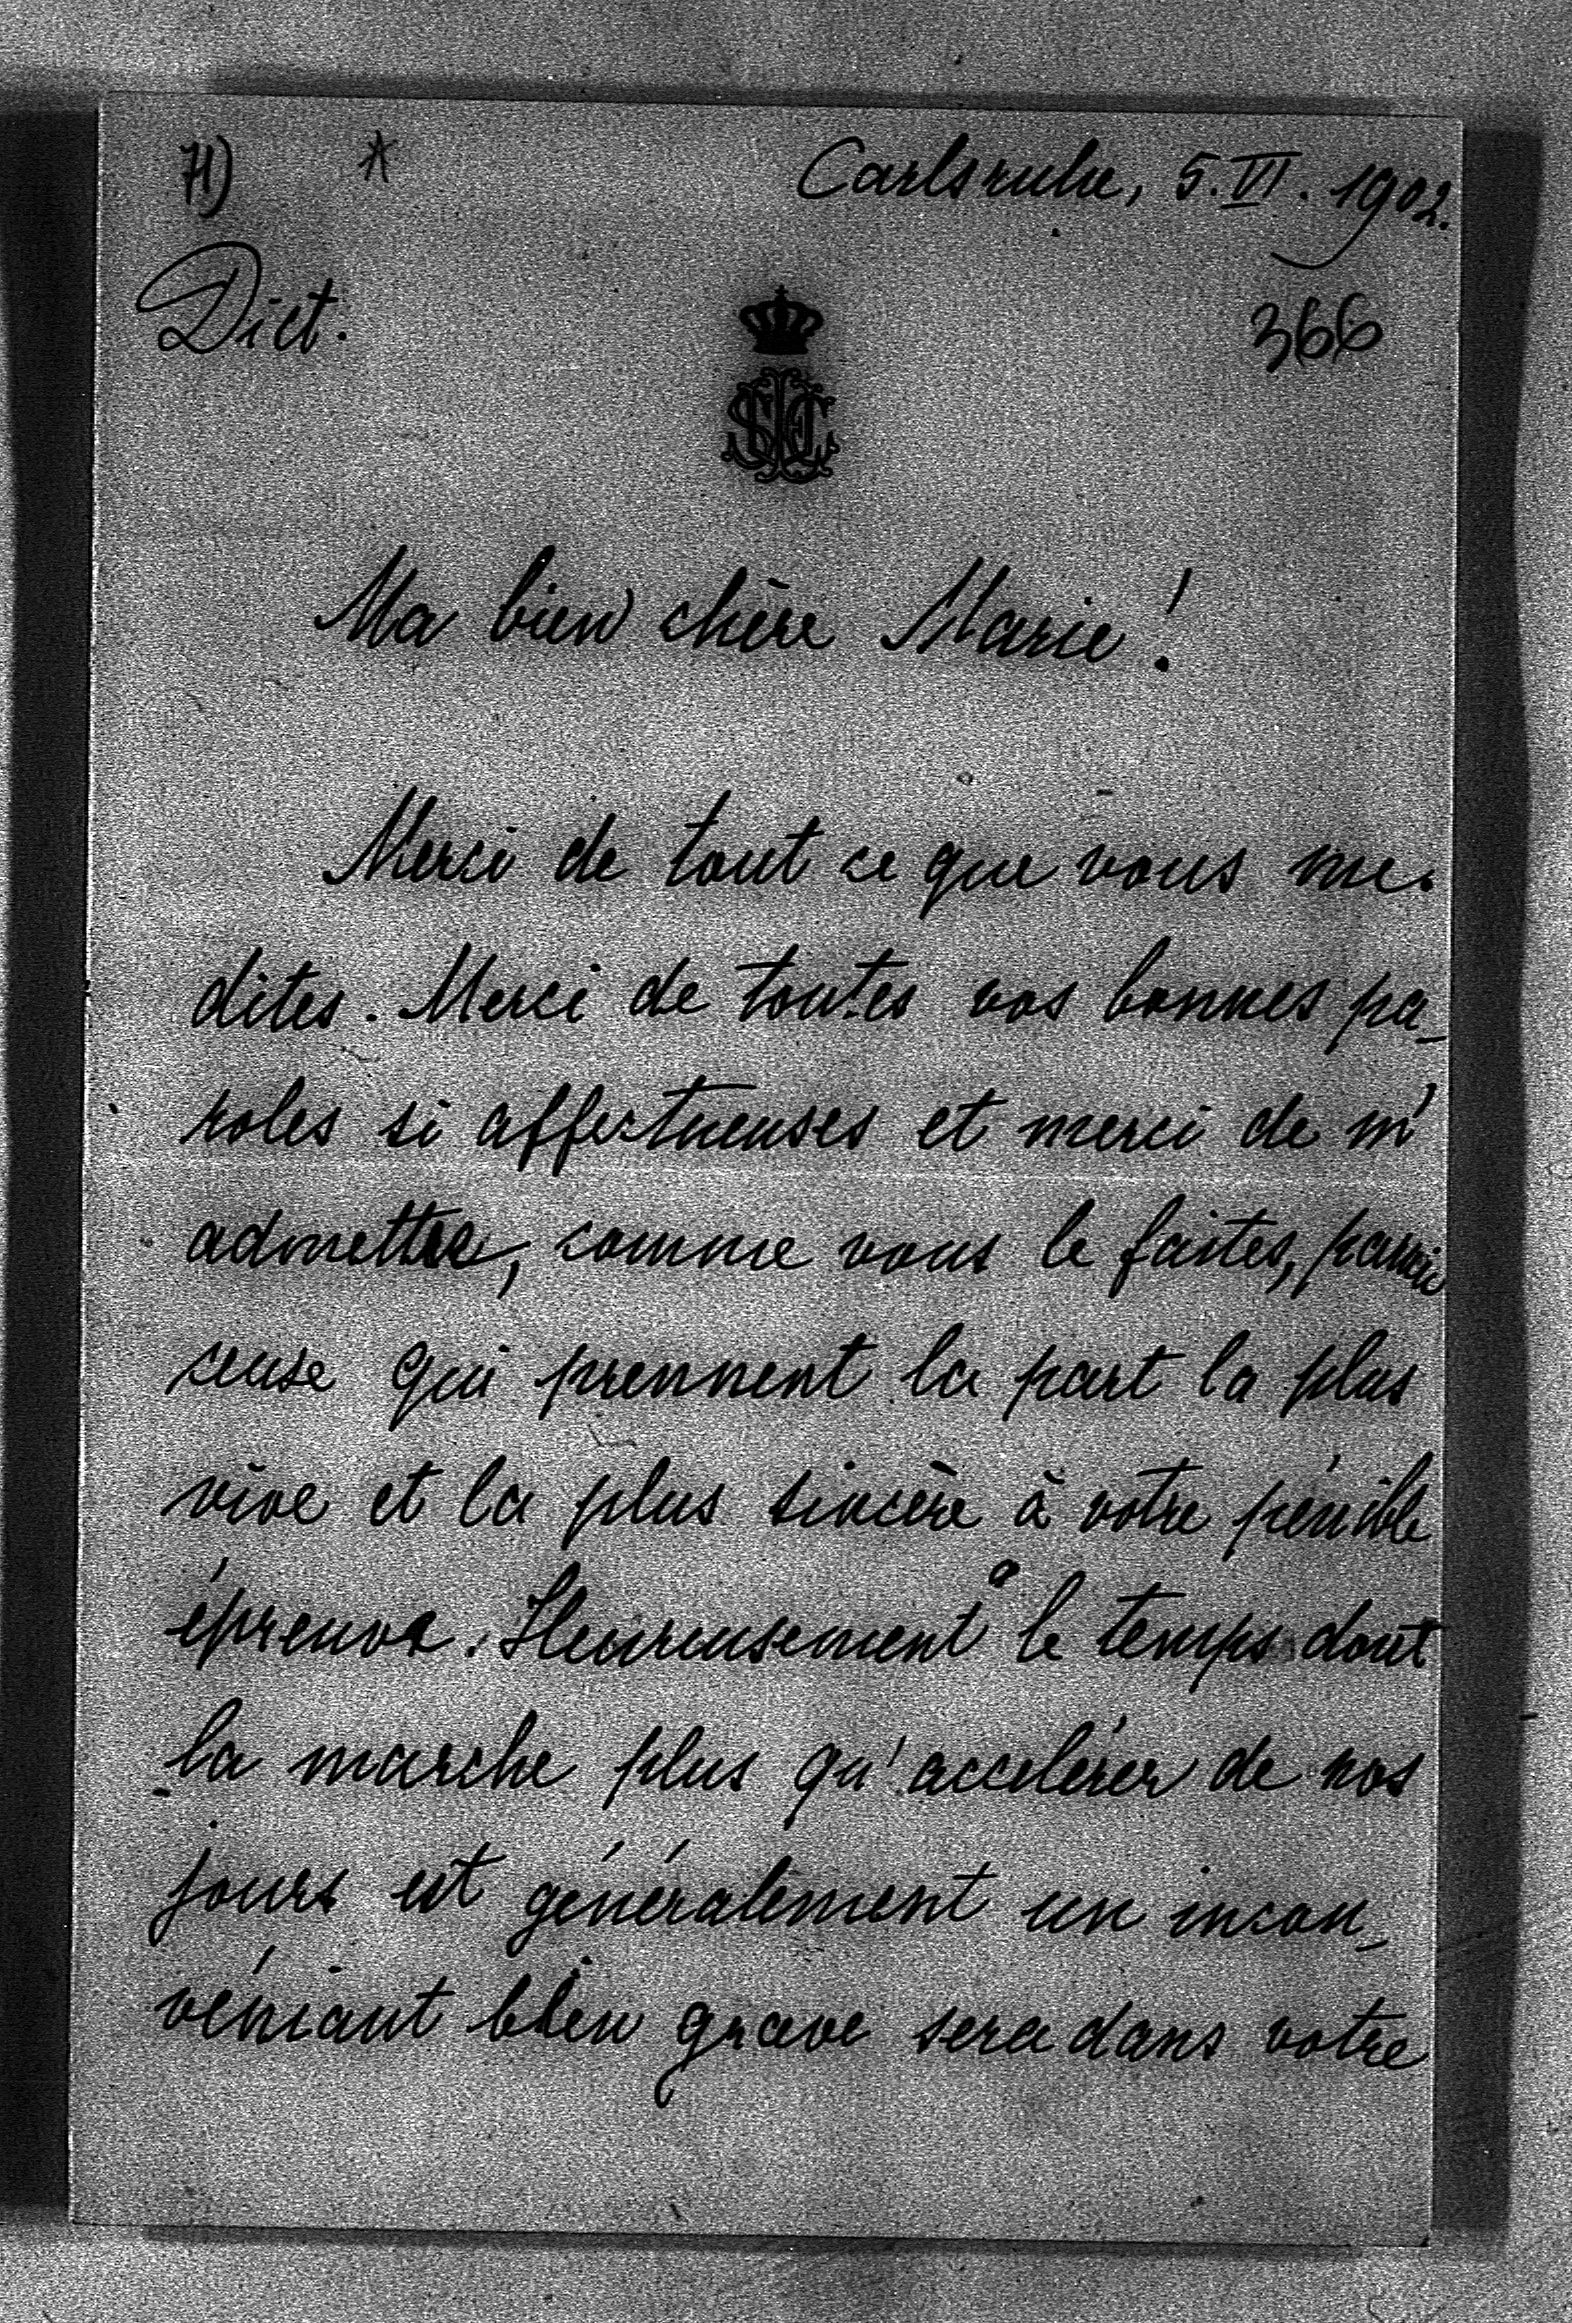 71)
Carlsruhe, 5. VI. 1902.
Dict.
366
Ma bien chère Marie!
Merci de tout ce que vous me
dites. Merci de toutes vos bonnes pa-
roles si affectueuses et merci de m'
admettre, comme vous le faites, parmi
ceuse qui prennent la part la plus
vive et la plus sincère à votre pénible
épreuve. Heureusement le temps dont
la marche plus qu'accelérer de nos
jours est généralement un incon-
véniant bien grave sera dans votre